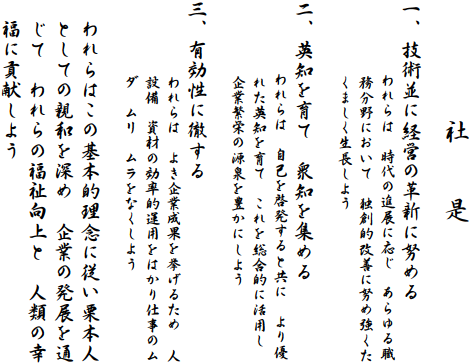 社　是
一、技術並に経営の革新に努める
われらは　時代の進展に応じ　あらゆる職
務分野において　独創的改善に努め強くた
くましく生長しよう
二、英知を育て　衆知を集める
われらは　自己を啓発すると共に　より優
れた英知を育て　これを総合的に活用し
企業繁栄の源泉を豊かにしよう
三、有効性に徹する
われらは　よき企業成果を挙げるため　人
設備　資材の効率的運用をはかり仕事のム
ダ　ムリ　ムラをなくしよう
われらはこの基本的理念に従い栗本人
としての親和を深め　企業の発展を通
じて　われらの福祉向上と　人類の幸
福に貢献しよう